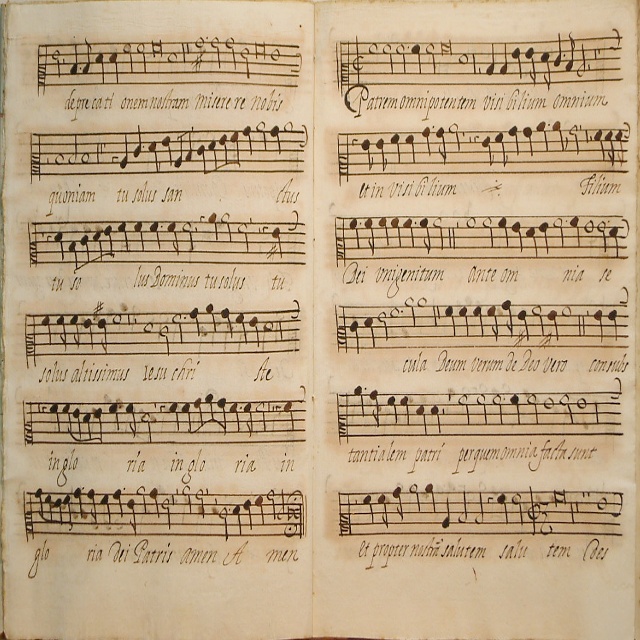 depre ca ti onem nostram misere re nobis
quoniam tu solus san ctus
tu so lus Dominus tu solus tu
solus altissimus Iesu chri ste
in glo ria in glo ria in
glo ria Dei Patris amen A men
Patrem omnipotentem visi bilium omnium
et in visi bilium Filium
Dei unigenitum Ante om nia se
cula Deum verum De Deo vero consubs
tantialem patri per quem omnia facta sunt
et propter nostrã salutem salu tem Des